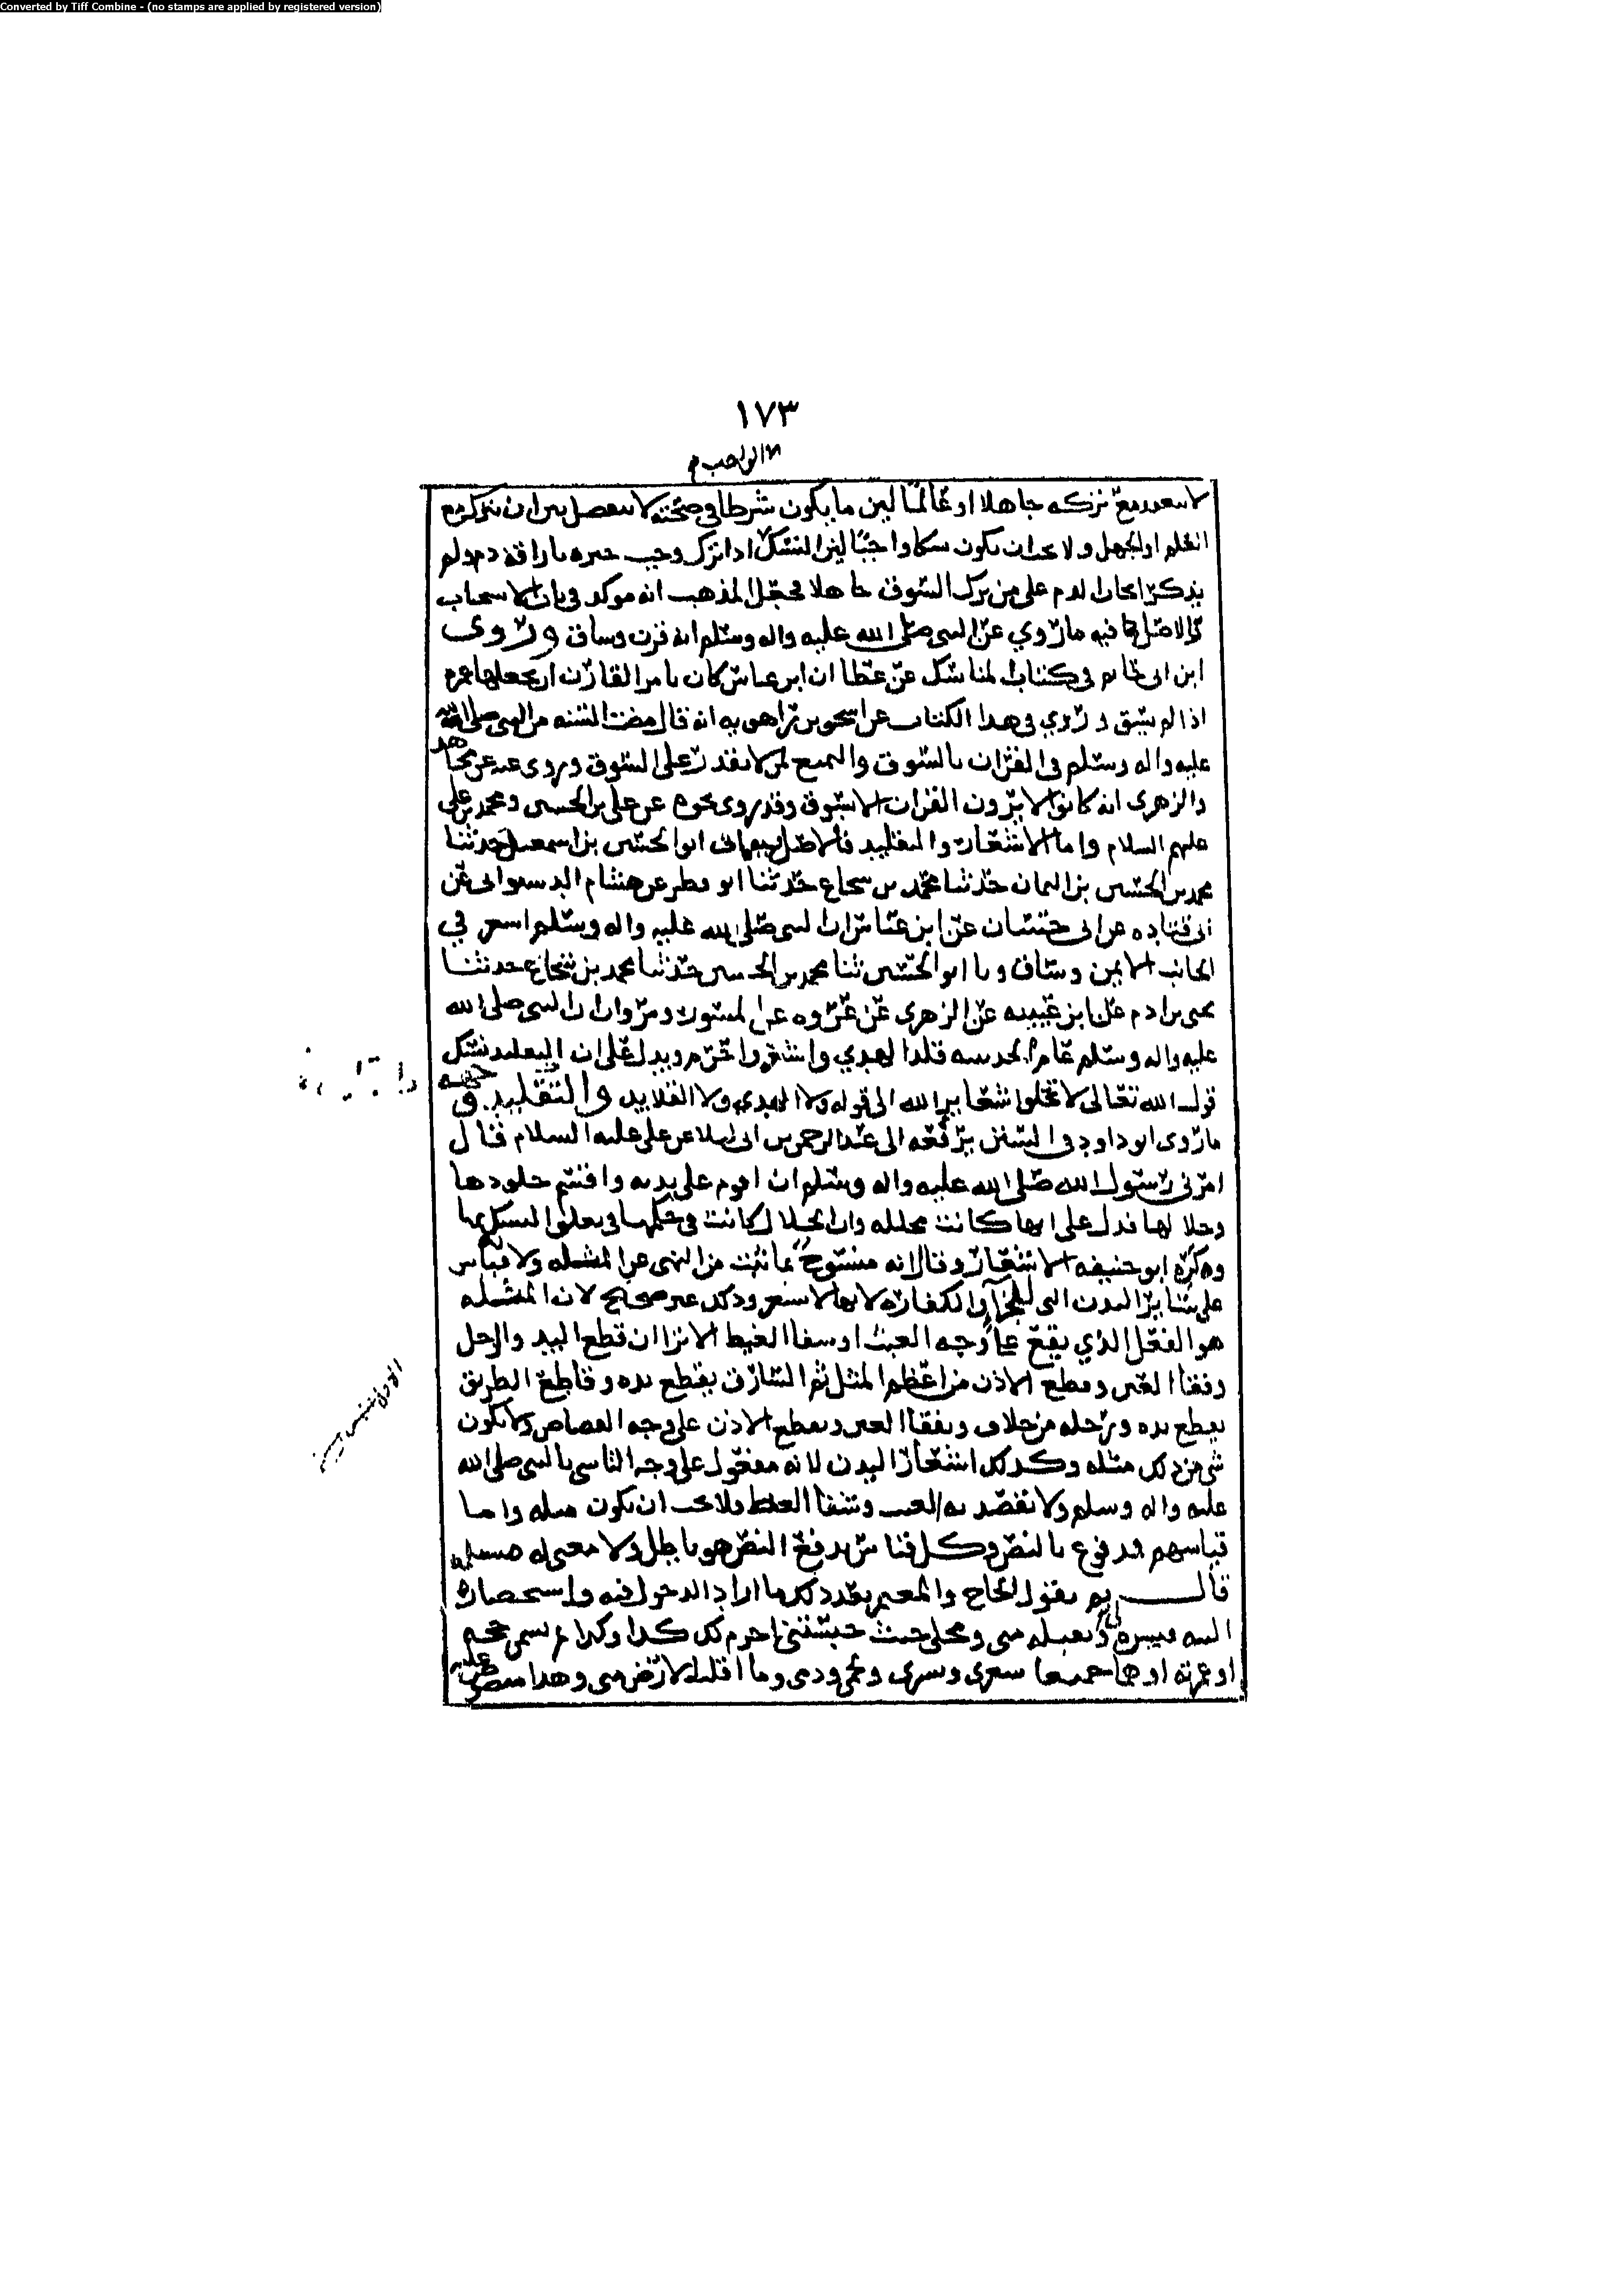 Converted by Tiff Combine - (no stamps are applied by registered version)
١٧٣
الواجب م
لا ينعقد مع تركه جاهلا او عالما لين ما يكون شرطا في صحته لا ينفصل بين ان يترك مع
العلم او الجهل ولا يجب ان يكون نسكا واجبا لين النسك اذا ترك وجب جبره باراقة دم ولم
يذكر ايجاب الدم على من ترك السوق جاهلا فحصل المذهب انه موكد في باب الاستحباب
والاصل فيه ما روي عن النبي صلى الله عليه واله وسلم انه قرن وساق وروى
ابن ابي حاتم في كتاب المناسك عن عطا ان ابن عباس كان يامر القارن ان يجعلها عمرة
اذا لم يسق وروي في هذا الكتاب عن اسحق بن راهويه انه قال مضت السنه من النبي صلى الله
عليه واله وسلم في القران بالسوق والتمتع لمن لا يقدر على السوق وروى عنه عن مجاهد
والزهري انه كانوا لا يرون القران الا بسوق وقد روى نحوه عن علي بن الحسين ومحمد بن علي
عليهم السلام واما الاشعار والتقليد فالاصل فيهما ابو الحسين بن اسمعيل حدثنا
محمد بن الحسين بن اليمان حدثنا محمد بن شجاع حدثنا ابو قطر عن هشام الدستوائي عن
ابي قتاده عن ابي حسان عن ابن عباس ان النبي صلى الله عليه واله وسلم اشعر في
الجانب الايمن وساق وبا ابو الحسين ثنا محمد بن الحسين حدثنا محمد بن شجاع حدثنا
يحيى بن ادم عن ابن عيينه عن الزهري عن عروه عن المسور ومروان ان النبي صلى الله
عليه واله وسلم عام الحديبيه قلد الهدي واشعر واحرم ويدل على ان التقليد نسك
قول الله تعالى لا تحلوا شعاير الله الى قوله ولا الهدي ولا القلايد والتقليد
ما روى ابو داود في السنن يرفعه الى عبد الرحمن بن ابي ليلا عن علي عليه السلام قال
امرني رسول الله صلى الله عليه واله وسلم ان اقوم على بدنه واقسم جلودها
وجلالها فدل على انها كانت مجلله وان الجلال كانت في حكمها في تعلق النسك بها
وكره ابو حنيفه الاشعار وقال انه منسوخ بما ثبت من النهي عن المثله ولا قياس
على ساير البدن التي للجزا والكفاره لانها لا تشعر وذلك غير صحيح لان المثله
هو الفعل الذي يقع على وجه العبث او شفا الغيظ الا ترا ان قطع اليد والرجل
وفقا العين وقطع الاذن من اعظم المثل ثم السارق يقطع يده وقاطع الطريق
يقطع يده ورجله من خلاف ويفقا العين ويقطع الاذن على وجه القصاص ولا يكون
شي من ذلك مثله وكذلك اشعار البدن لانه مفعول على وجه التاسي بالنبي صلى الله
عليه واله وسلم ولا يقصد به العبث وشفا الغيظ فلا يجب ان يكون مثله واما
قياسهم فمدفوع بالنص وكل قياس يدفع النص هو باطل ولا معنى له مسله
قال ثم يقول الحاج والمعتمر بعد ذلك ما اراد الدخول فيه واستحضاره
اللهم فيسره لي وتقبله مني ومحلي حيث حبستني احرم لك كذا وكذا ثم يسمي حجه
او عمرته او هما جميعا شعري وبشري ولحمي ودمي وما اقلته الارض مني وهذا منصوص عليه